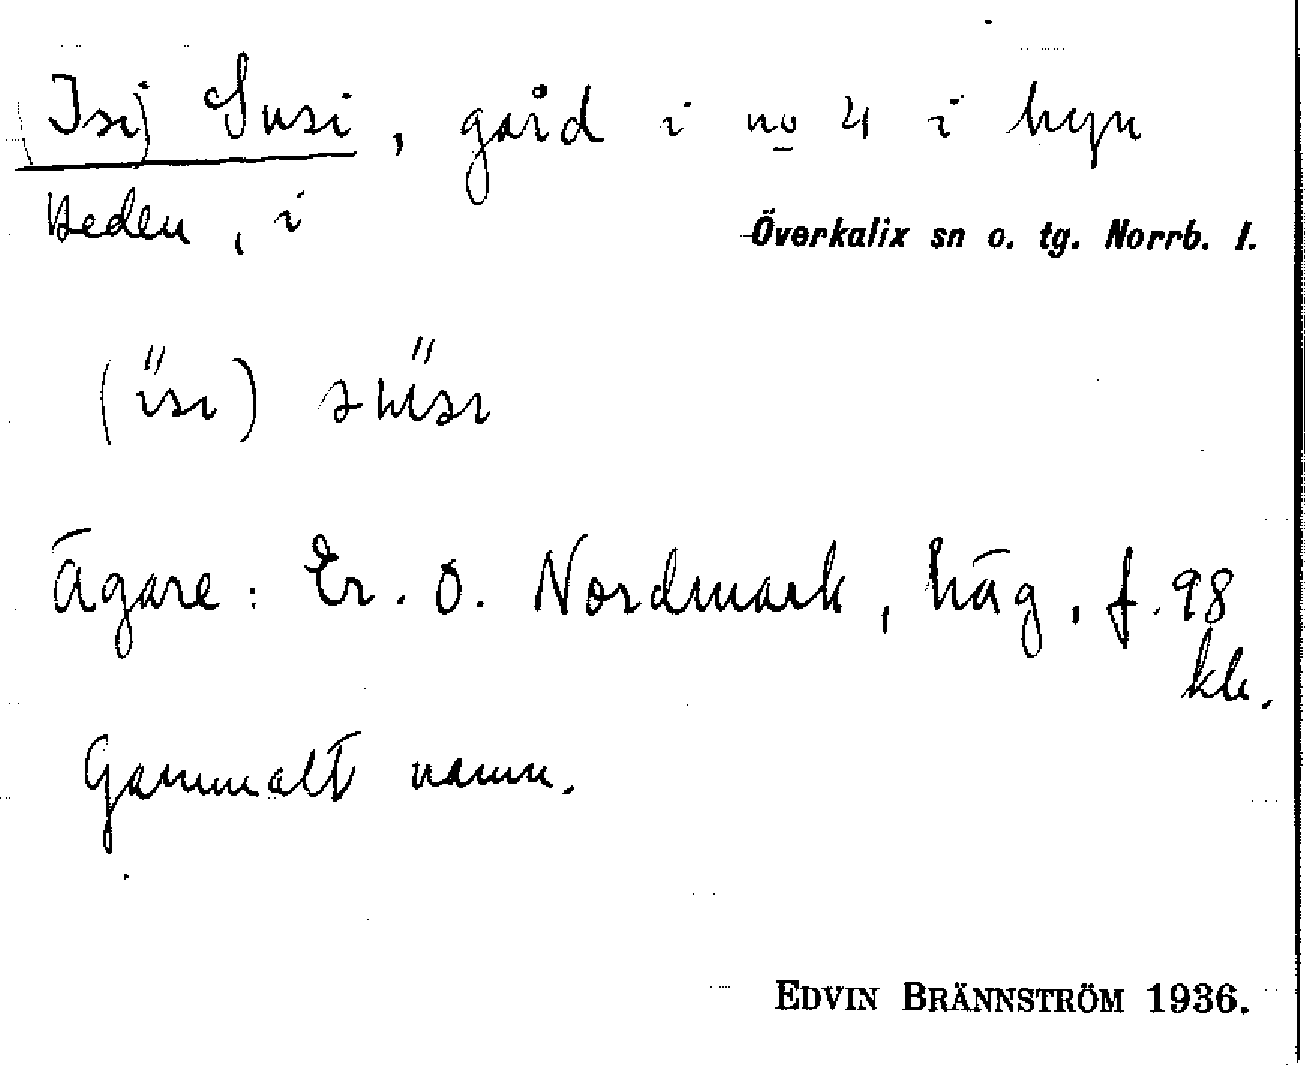 (Isi) Susi, gård i no 4 i byn
Heden, i
Överkalix sn o. tg. Norrb. l.
(isi)
Ägare: Er. O. Nordmark, häg, f. 98
kh.
Gammalt namn.
EDVIN BRÄNNSTRÖM 1936.